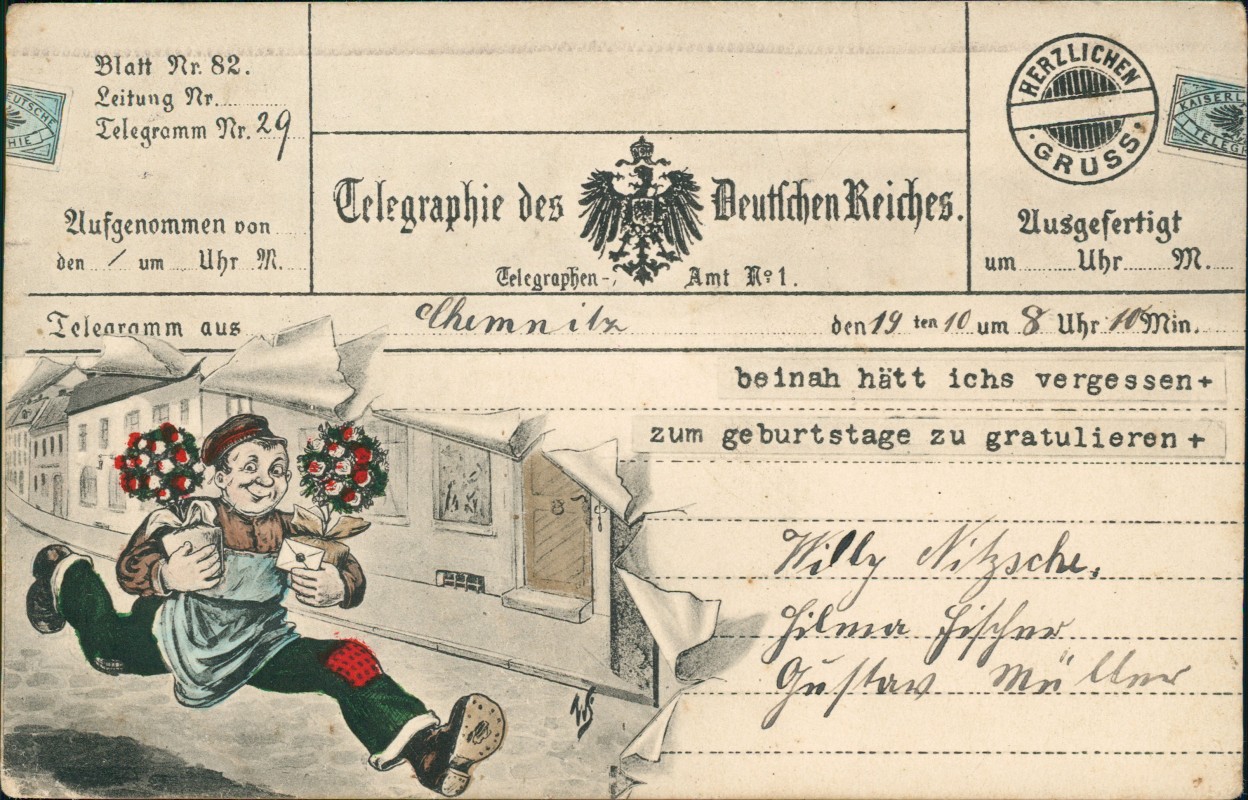 Blatt Nr. 82.
Leitung Nr.
Telegramm Nr. 29
Aufgenommen von
den / um Uhr M.
DEUTSCHE
HIE
Telegraphie des Deutschen Reiches.
Telegraphen- Amt No 1.
HERZLICHEN
GRUSS
KAISERL
TELEGR
Ausgefertigt
um Uhr M.
Telegramm aus Chemnitz den 19 ten 10 um 8 Uhr 10 Min.
beinah hätt ichs vergessen+
zum geburtstage zu gratulieren+
Willy Nitzsche.
Hilma Fischer
Gustav Müller